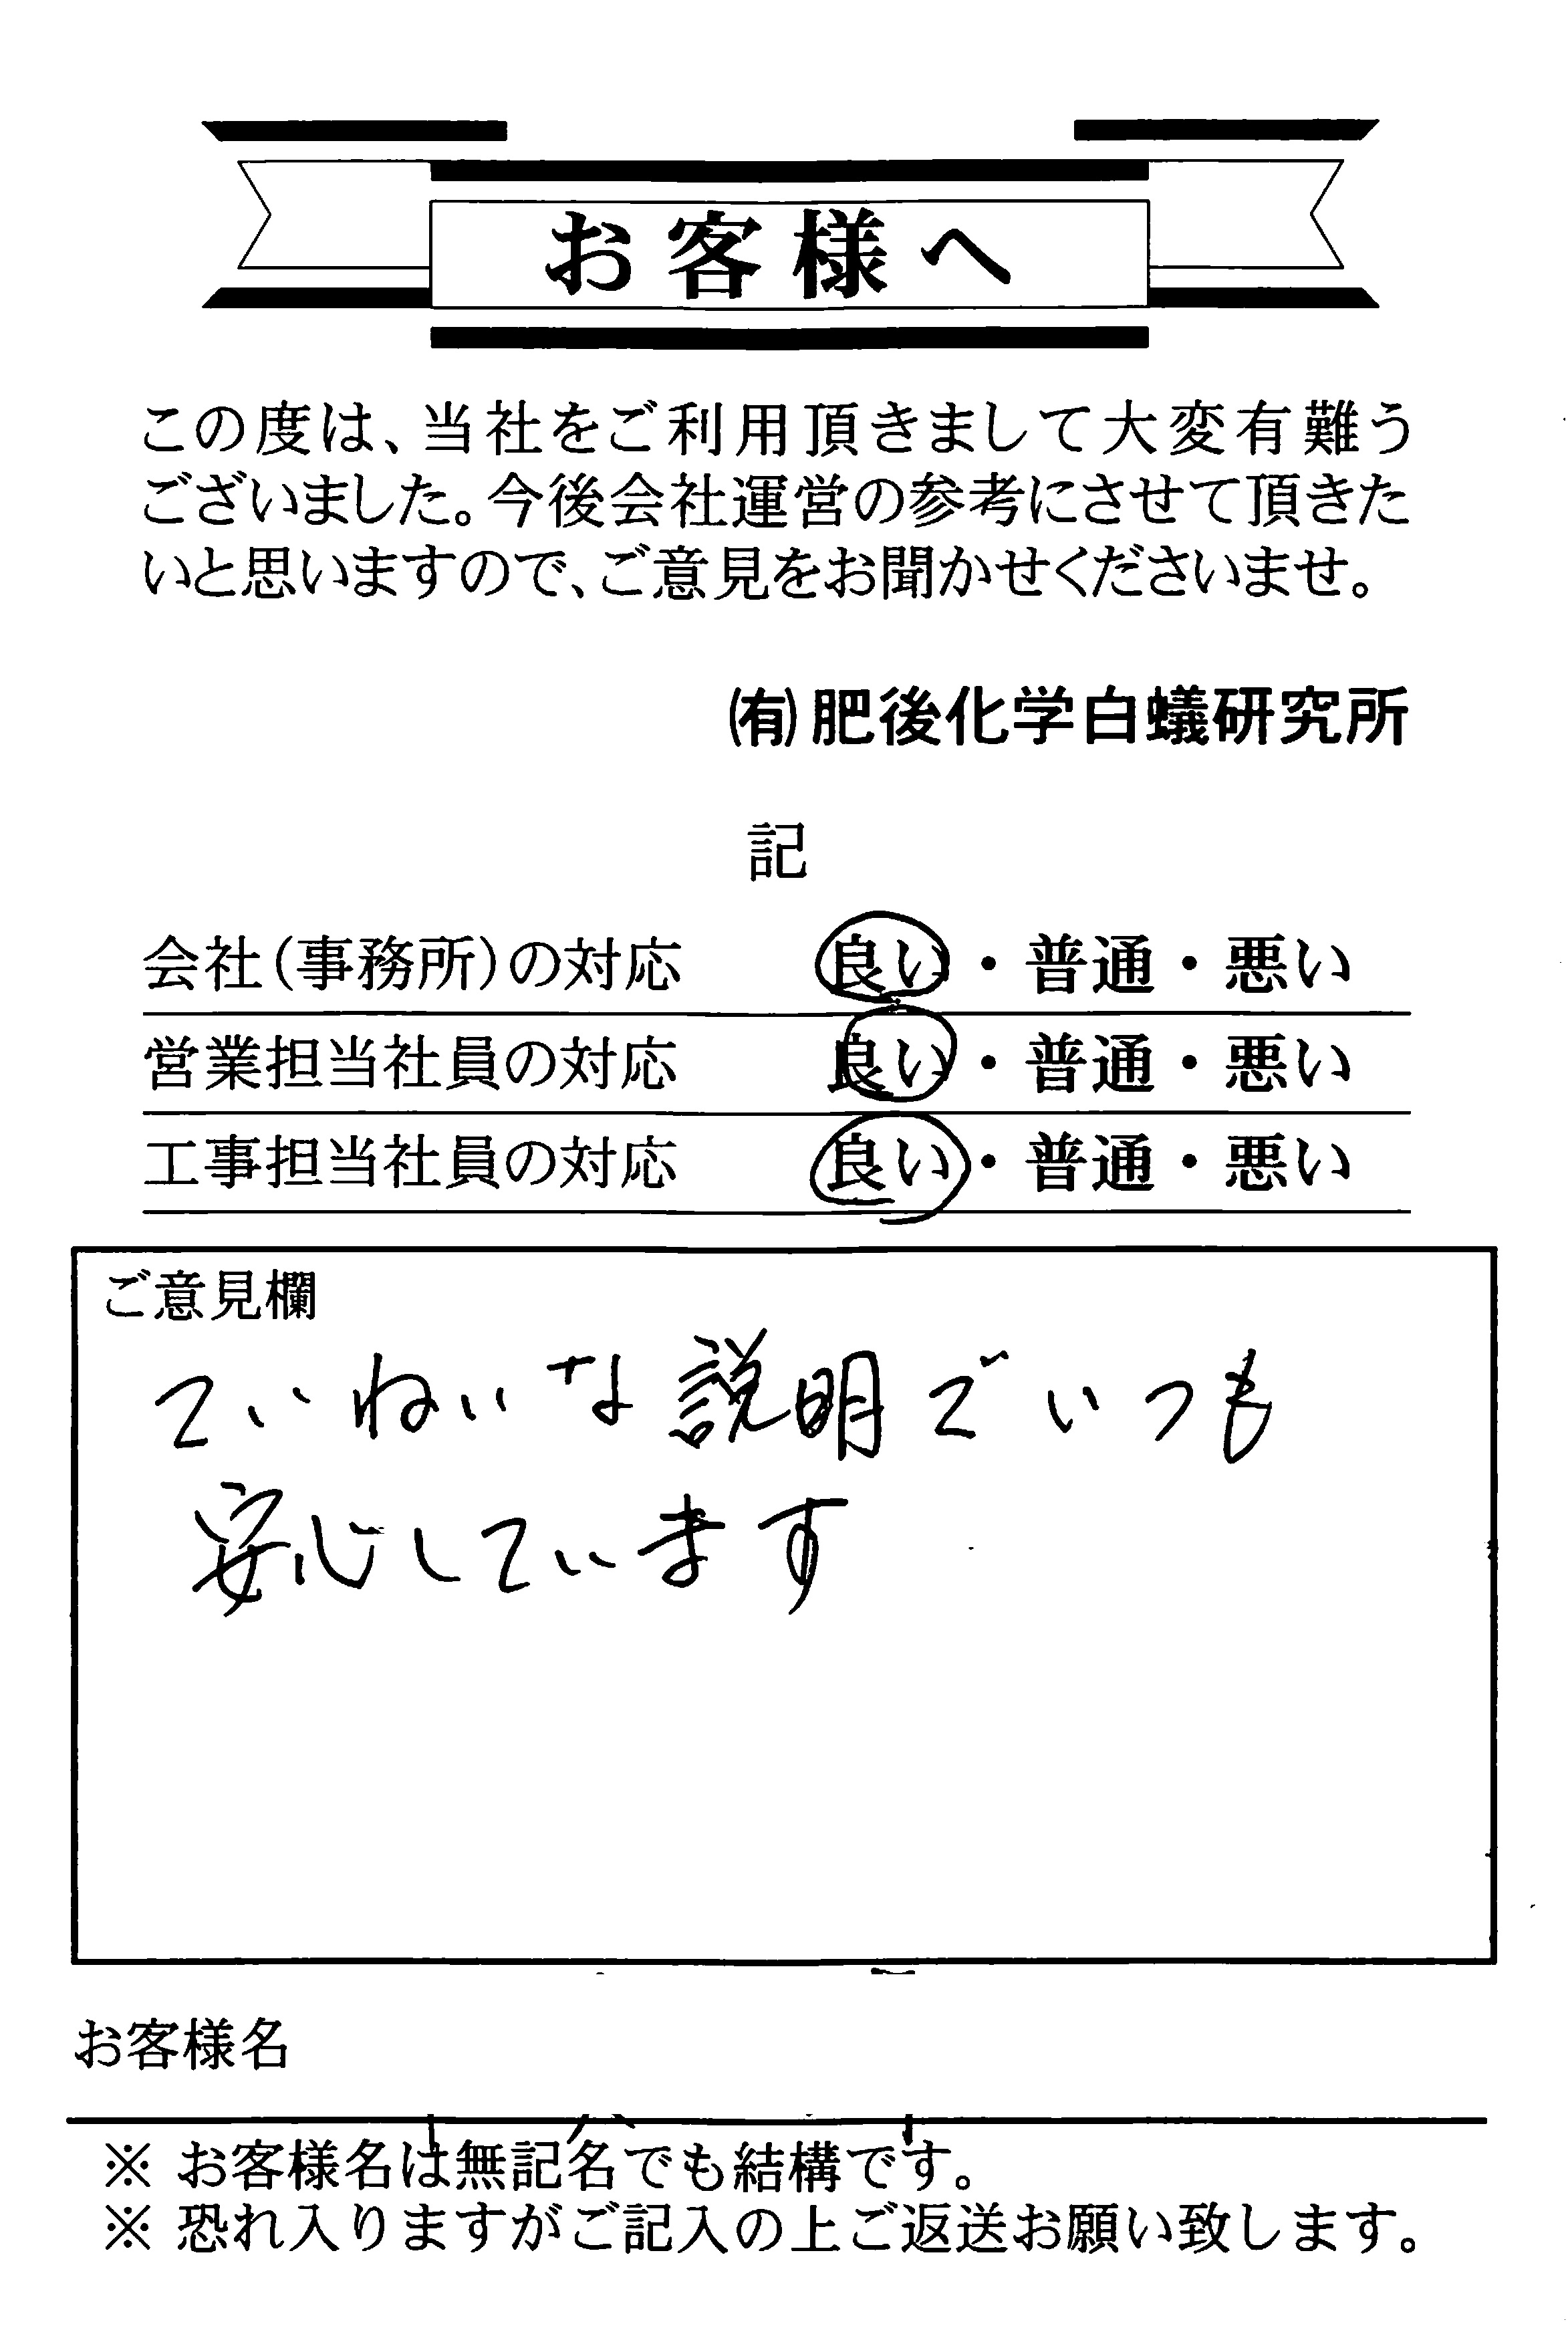 お客様へ
この度は、当社をご利用頂きまして大変有難う
ございました。今後会社運営の参考にさせて頂きた
いと思いますので、ご意見をお聞かせくださいませ。
㈲肥後化学白蟻研究所
記
会社(事務所)の対応 良い・普通・悪い
営業担当社員の対応 良い・普通・悪い
工事担当社員の対応 良い・普通・悪い
ご意見欄
ていねいな説明でいつも
安心しています
お客様名
※ お客様名は無記名でも結構です。
※ 恐れ入りますがご記入の上ご返送お願い致します。